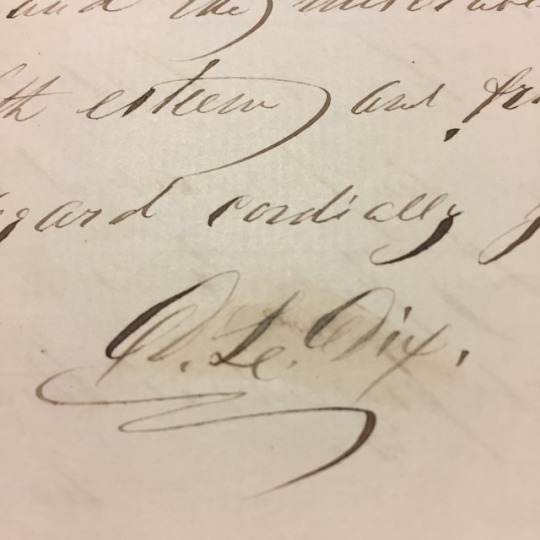 and the
esteem and
cordially
D. L. Dix.